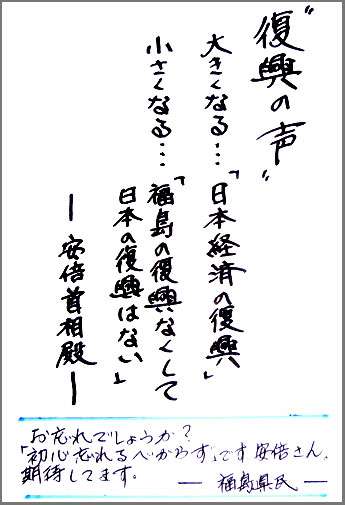 "復興の声"
大きくなる…「日本経済の復興」
小さくなる…「福島の復興なくして
日本の復興はない」
― 安倍首相殿 ―
お忘れでしょうか?
「初心忘れるべからず」です。安倍さん。
期待してます。 ― 福島県民 ―